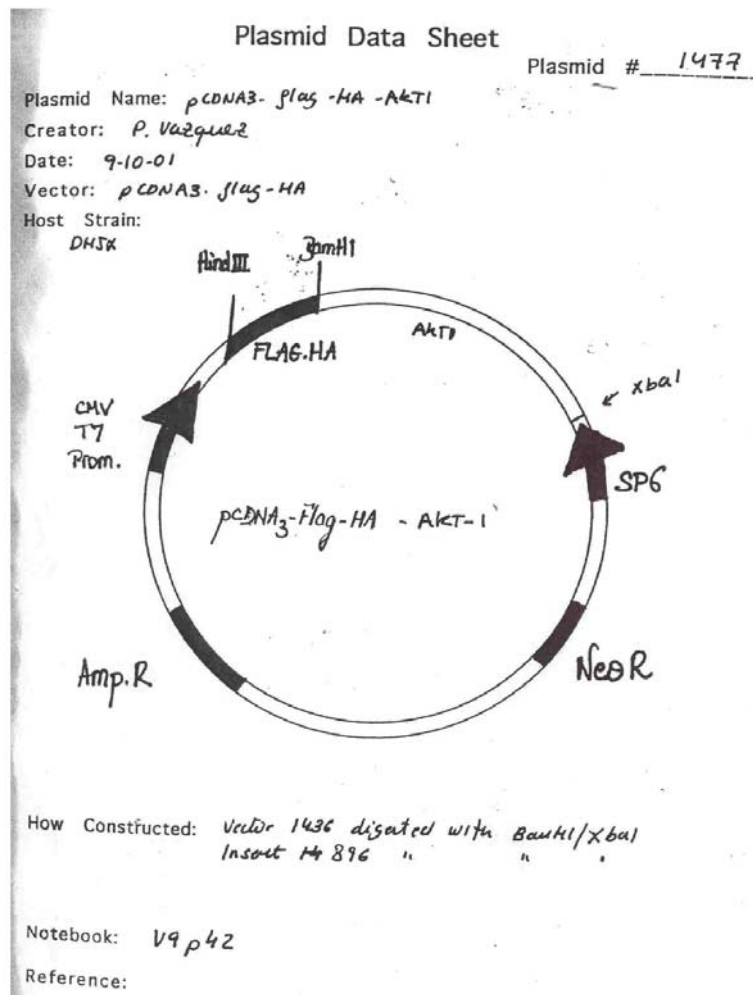 Plasmid Data Sheet
Plasmid # 1477
Plasmid Name: pCDNA3- flag -HA -AKT1
Creator: P. Vazquez
Date: 9-10-01
Vector: pCDNA3. flag-HA
Host Strain:
DH5α
HindIII
BamH1
FLAG.HA
AKT1
xbaI
CMV
T7
Prom.
SP6
pCDNA3-Flag-HA - AKT-1
Amp.R
NeoR
How Constructed: Vector 1436 digested with BamH1/Xbal
Insert 896 " " "
Notebook: V9 p42
Reference: